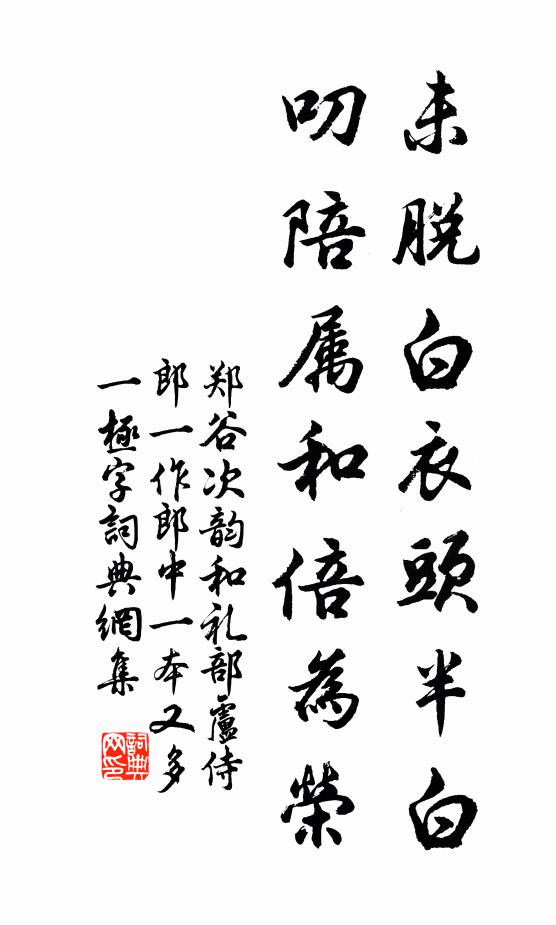 未脫白衣頭半白
叨陪属和倍為榮
郑谷次韵和礼部盧侍
郎一作郎中一本又多
一極字詞典網集
詞典網印